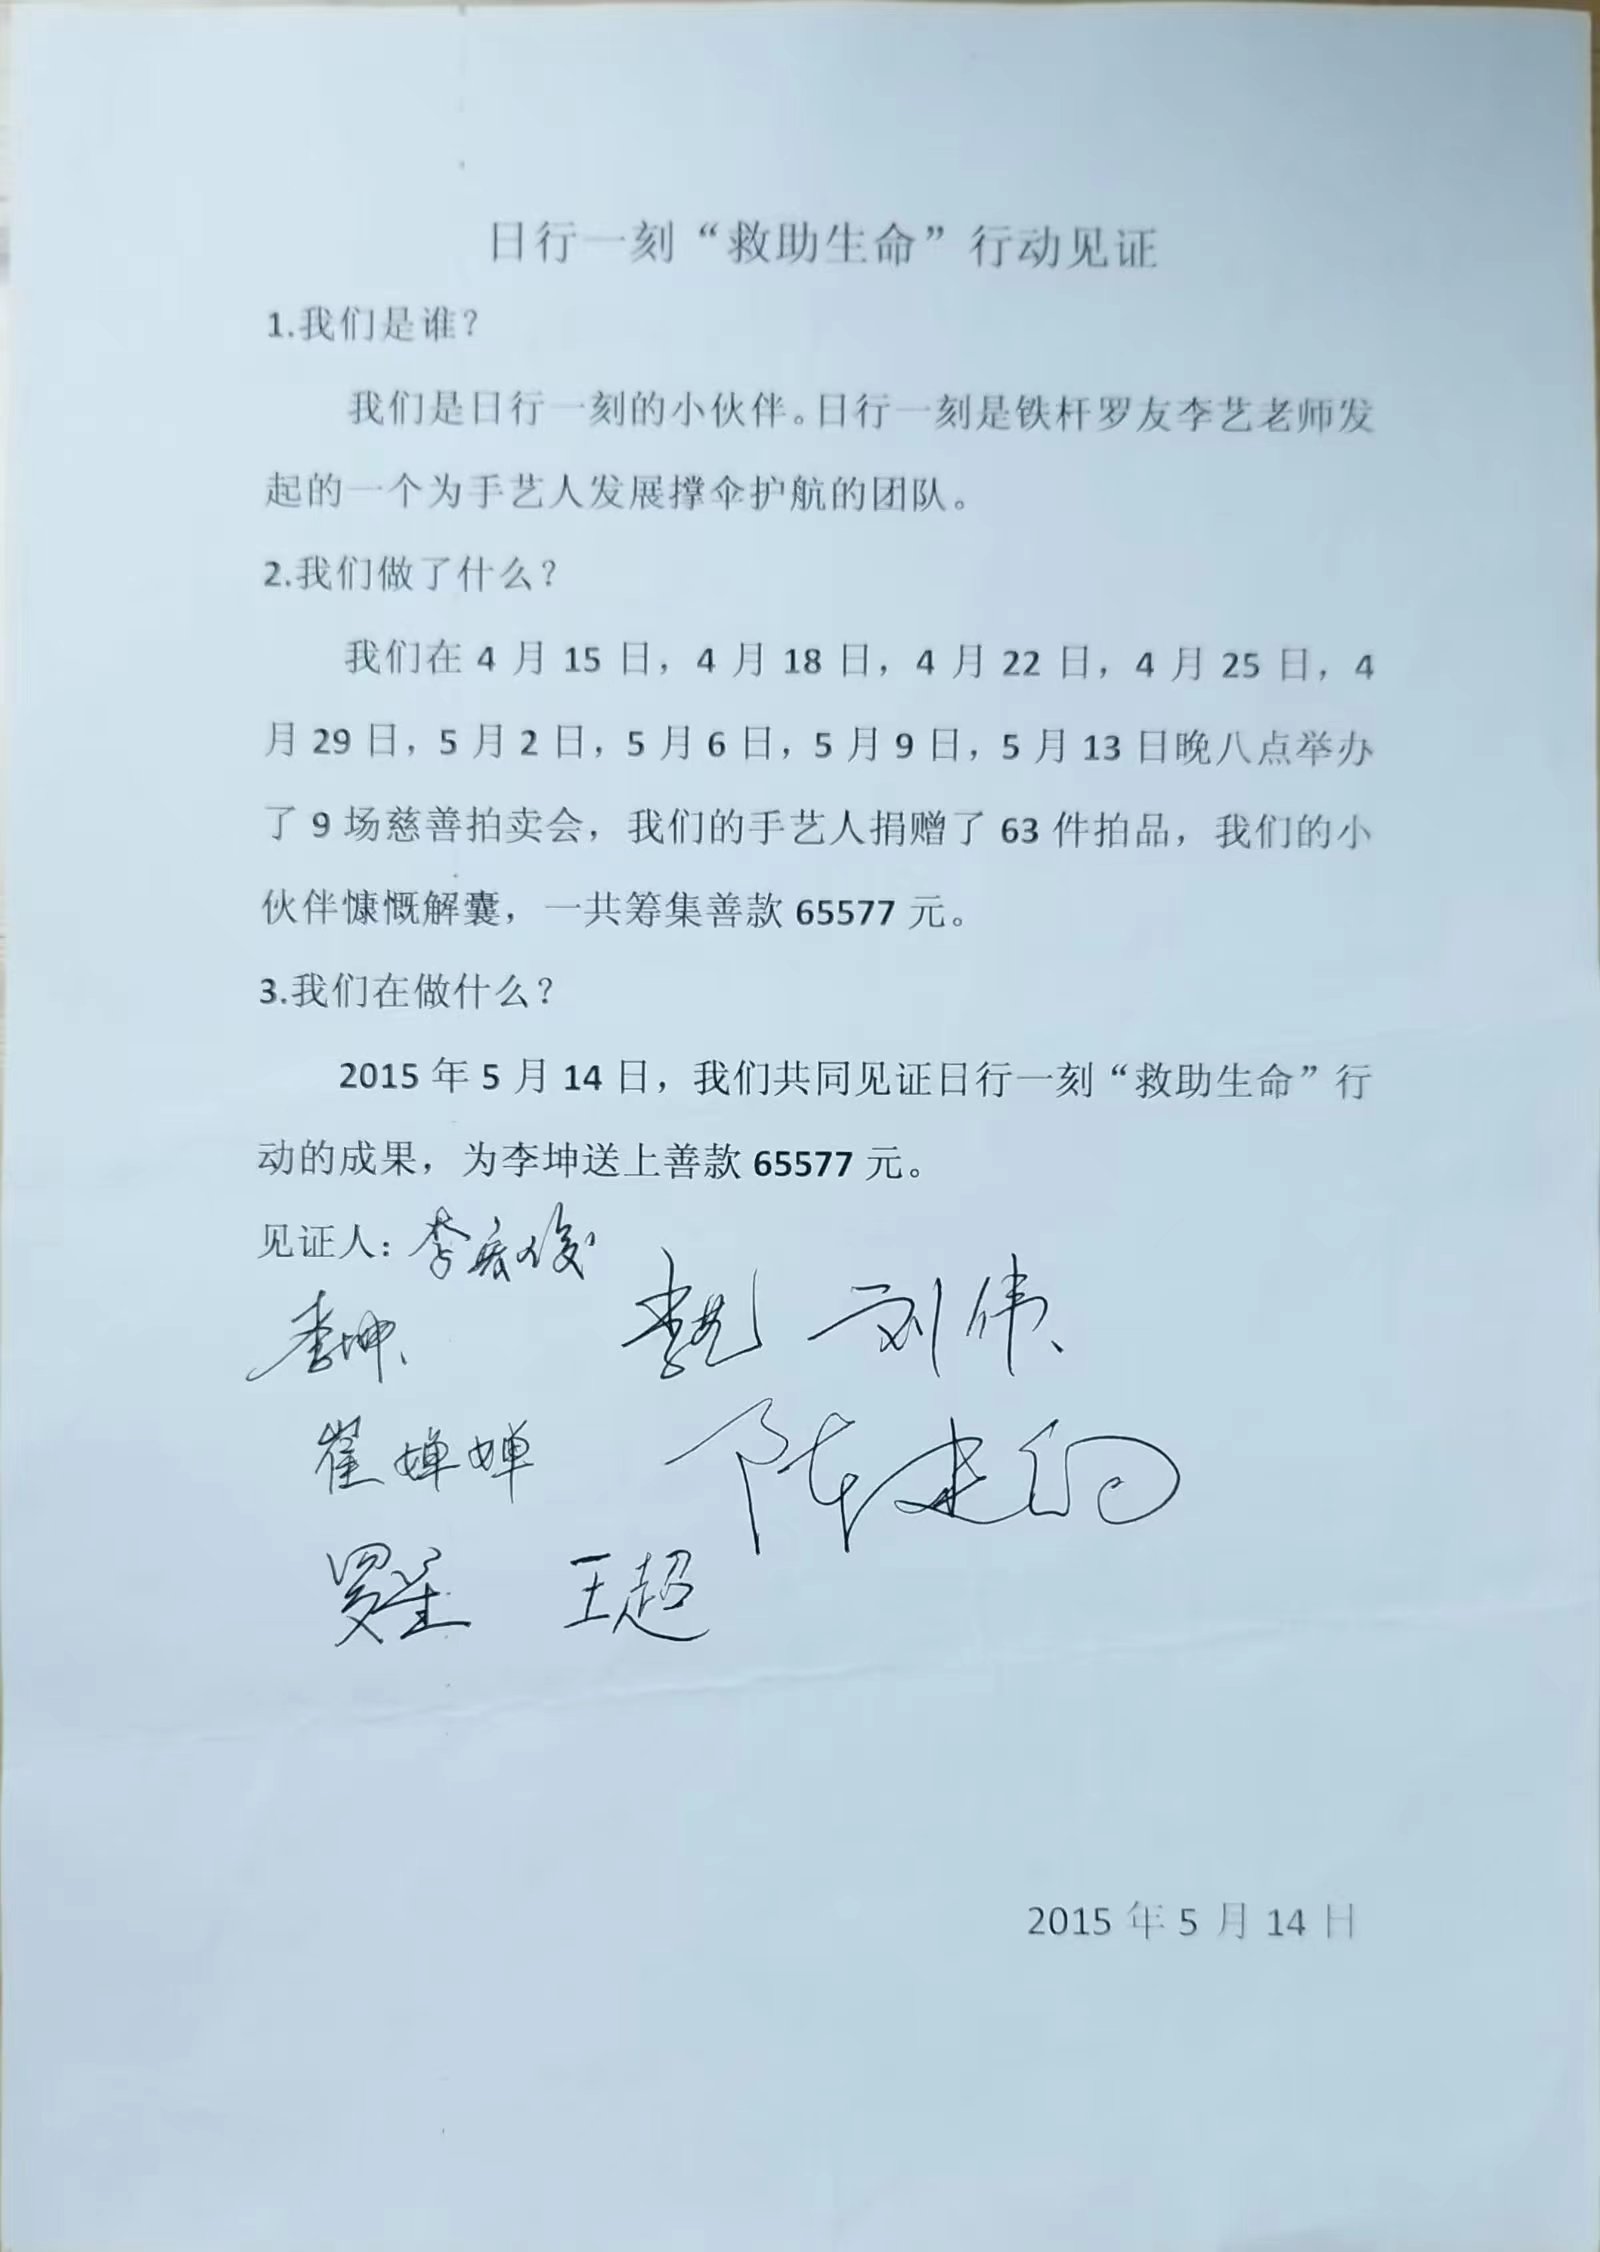 日行一刻“救助生命”行动见证
1.我们是谁？
我们是日行一刻的小伙伴。日行一刻是铁杆罗友李艺老师发
起的一个为手艺人发展撑伞护航的团队。
2.我们做了什么？
我们在 4 月 15 日，4 月 18 日，4 月 22 日，4 月 25 日，4
月 29 日，5 月 2 日，5 月 6 日，5 月 9 日，5 月 13 日晚八点举办
了 9 场慈善拍卖会，我们的手艺人捐赠了 63 件拍品，我们的小
伙伴慷慨解囊，一共筹集善款 65577 元。
3.我们在做什么？
2015 年 5 月 14 日，我们共同见证日行一刻“救助生命”行
动的成果，为李坤送上善款 65577 元。
见证人：李宏俊
李坤、 李艺 刘伟、
崔婵婵 陈建
罗星 王超
2015 年 5 月 14 日